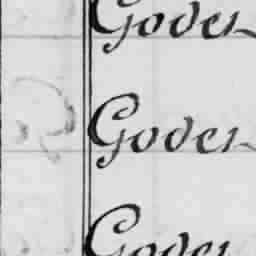 Godes
Godes
Godes